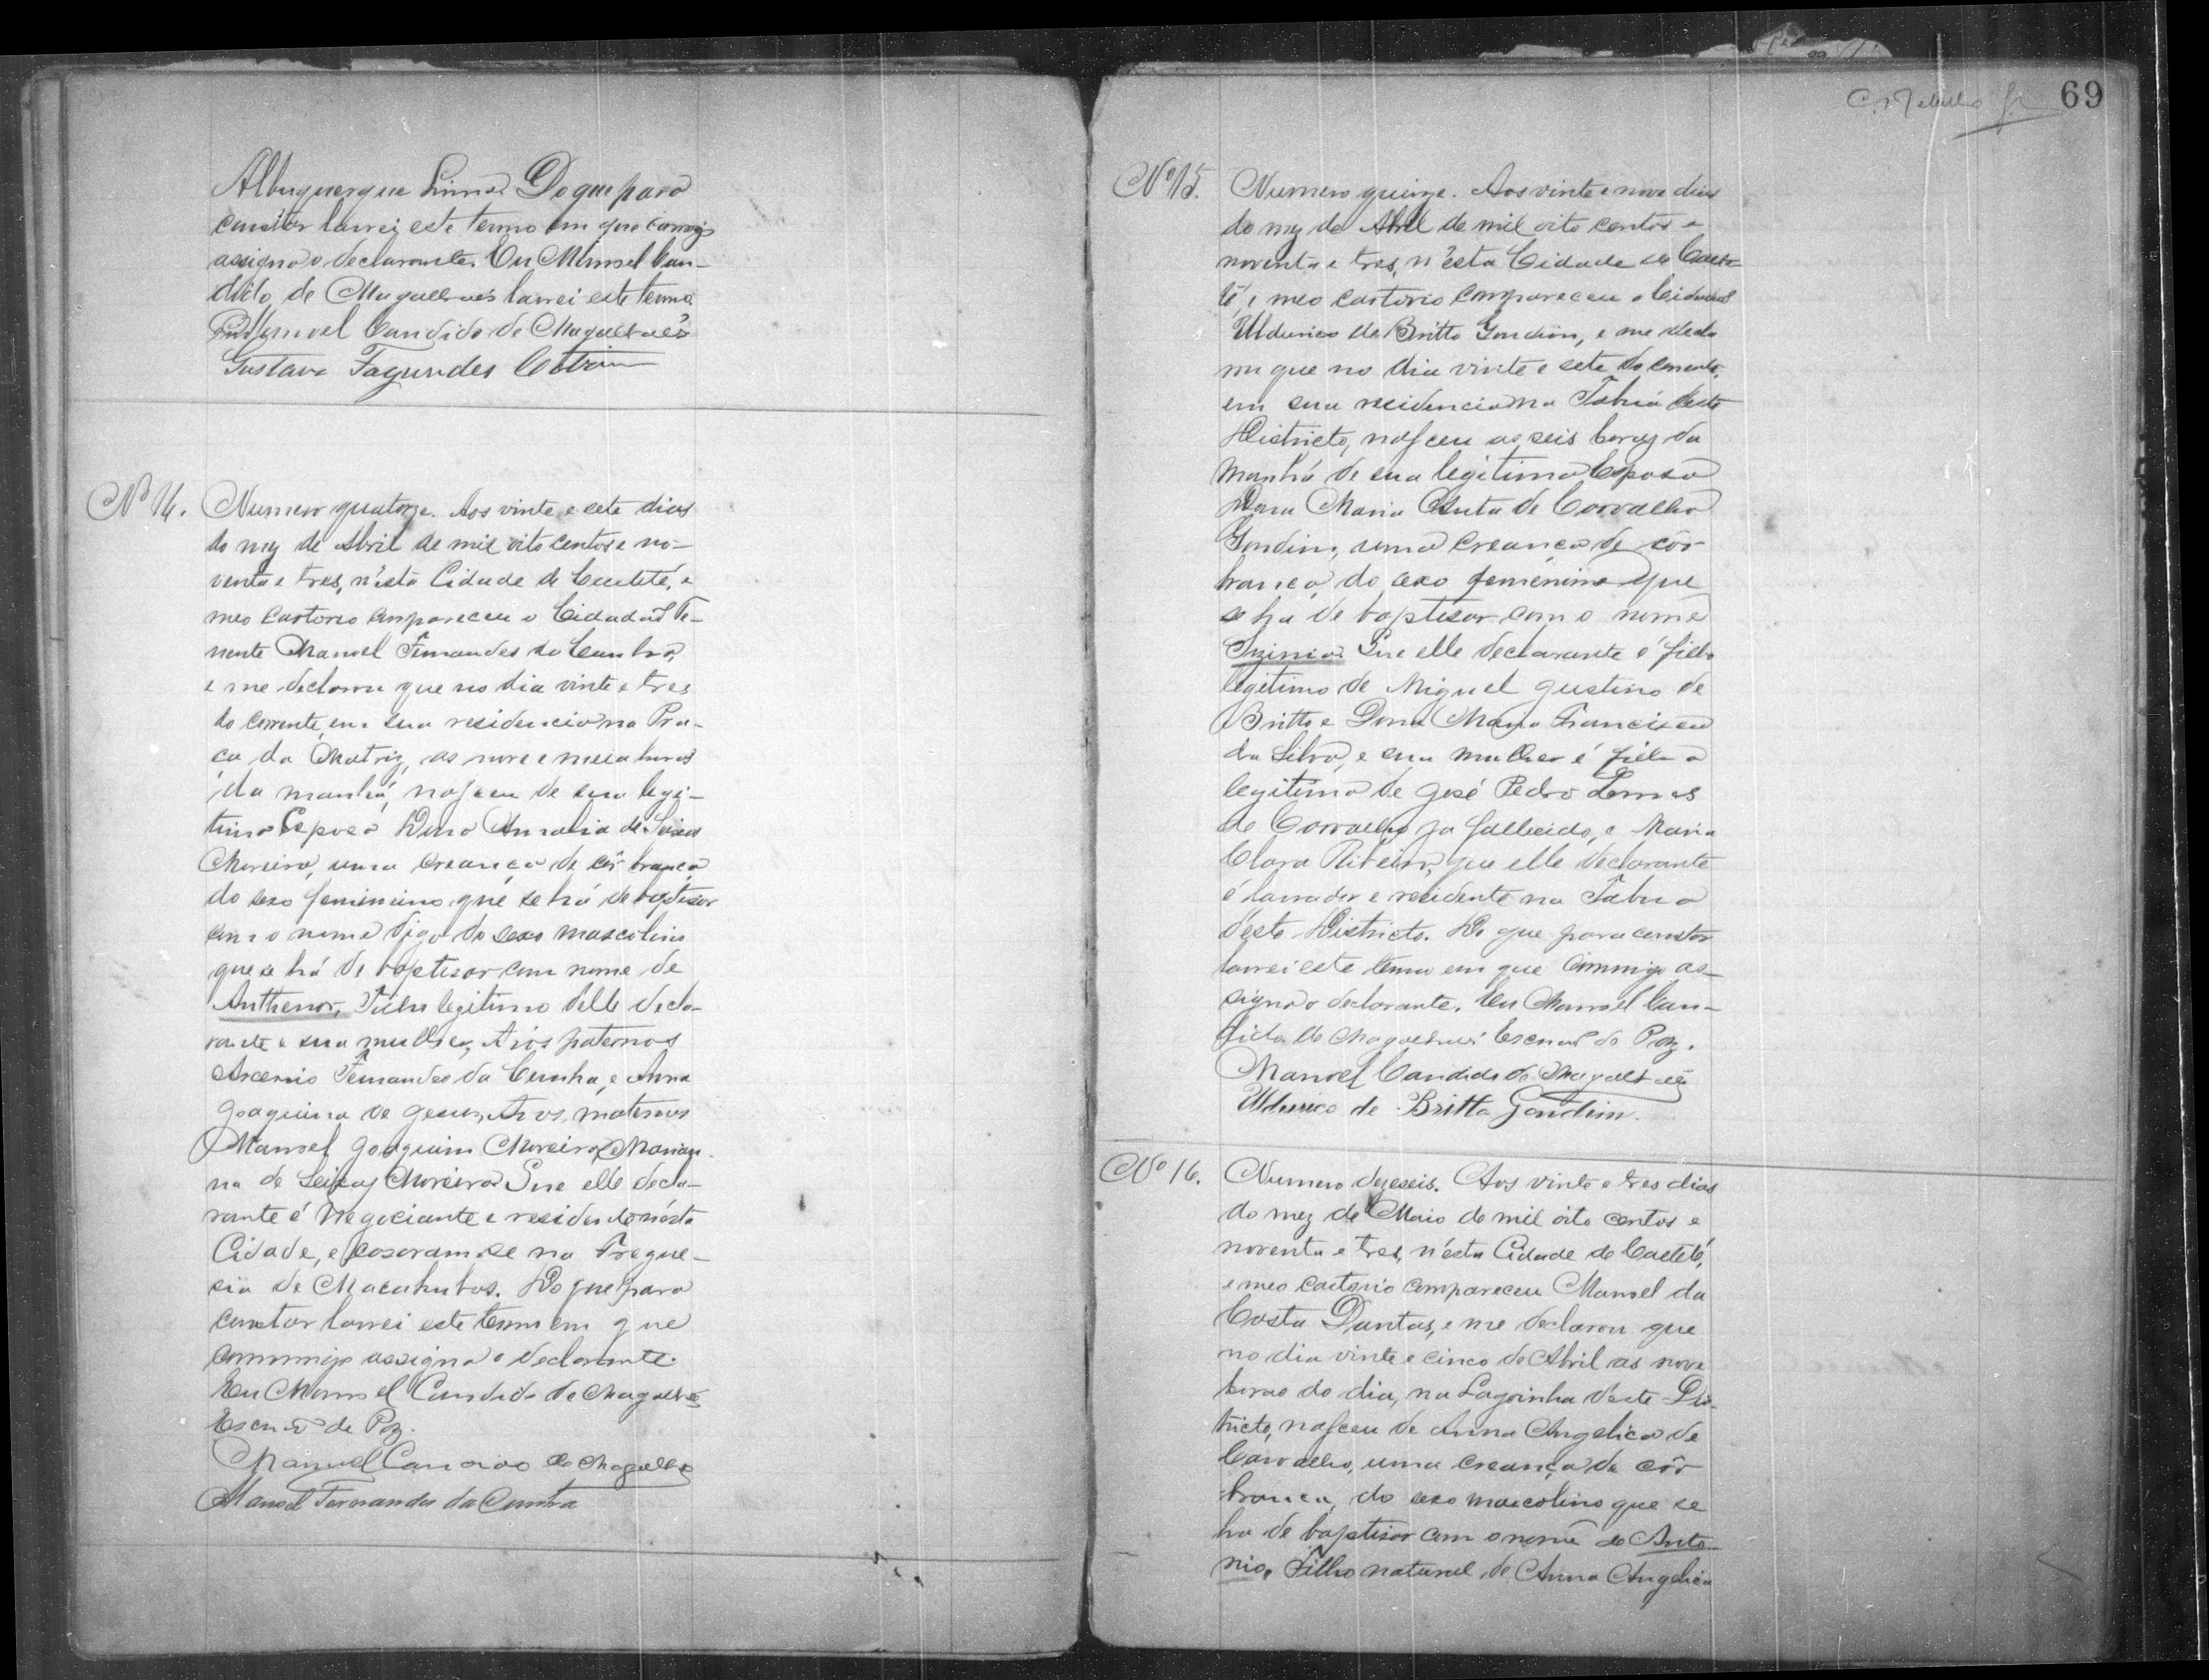 Albuquerque Lima. Do que para
constar lavrei este termo em que comigo
assigna o declarante. Eu Manoel Can-
dido de Magalhães lavrei este termo.
Manoel Candido de Magalhães
Gustavo Fagundes Cotrim
Nº 14. Numero quatorze. Aos vinte e sete dias
do mez de Abril de mil oito centos e no-
venta e tres, n'esta Cidade de Caeteté, e
meo cartorio compareceu o Cidadão Te-
nente Manoel Fernandes da Cunha,
e me declarou que no dia vinte e tres
do corrente, em sua residencia na Pra-
ça da Matriz, as nove e meia horas
da manhã, nasceu de sua legi-
tima Esposa Dona Amalia de Seixas
Moreira, uma creança de côr branca
do sexo feminino que se há de baptisar
com o nome digo do sexo mascolino
que se há de baptisar com nome de
Anthenor, Filho legitimo delle decla-
rante e sua mulher, Avos paternos
Arcenio Fernandes da Cunha, e Anna
Joaquina de Jesus, Avos maternos
Manoel Joaquim Moreira, e Marian-
na de Seixas Moreira. Que elle decla-
rante é Negociante e residente n'esta
Cidade, e casaram-se na Fregue-
sia de Macahubas. Do que para
constar lavrei este termo em que
commigo assigna o declarante.
Eu Manoel Candido de Magalhães
Escrvº de Paz.
Manoel Candido de Magalhães
Manoel Fernandes da Cunha
69
Nº 15. Numero quinze. Aos vinte e nove dias
do mez de Abril de mil oito centos e
noventa e tres, n'esta Cidade de Caete-
té, e meo cartorio compareceu o Cidadão
Ulderico de Britto Gondim, e me decla
rou que no dia vinte e sete do corrente,
em sua residencia na Tabua deste
Districto, nasceu as seis horas da
manhã de sua legitima Esposa
Dona Maria Anta de Carvalho
Gondim, uma creança de côr
branca, do sexo feminino que
se ha de baptisar com o nome
Que elle declarante é filho
legitimo de Miguel Justino de
Britto e Dona Maria Francisca
da Silva, e sua mulher é filha
legitima de José Pedro Lemos
de Carvalho ja fallecido, e Maria
Clara Ribeiro, que elle declarante
é lavrador e residente na Tabua
d'este Districto. Do que para constar
lavrei este termo em que commigo as-
signa o declarante. Eu Manoel Can-
dido de Magalhães Escrvº de Paz.
Manoel Candido de Magalhães
Ulderico de Britto Gondim.
Nº 16. Numero dezeseis. Aos vinte e tres dias
do mez de Maio de mil oito centos e
noventa e tres, n'esta Cidade de Caeteté,
e meo cartorio compareceu Manoel da
Costa Dantas, e me declarou que
no dia vinte e cinco de Abril as nove
horas do dia, na Lagoinha deste Dis-
tricto, nasceu de Anna Angelica de
Carvalho, uma creança de côr
branca, do sexo mascolino que se
ha de baptisar com o nome de Anto-
nio, Filho natural de Anna Angelica